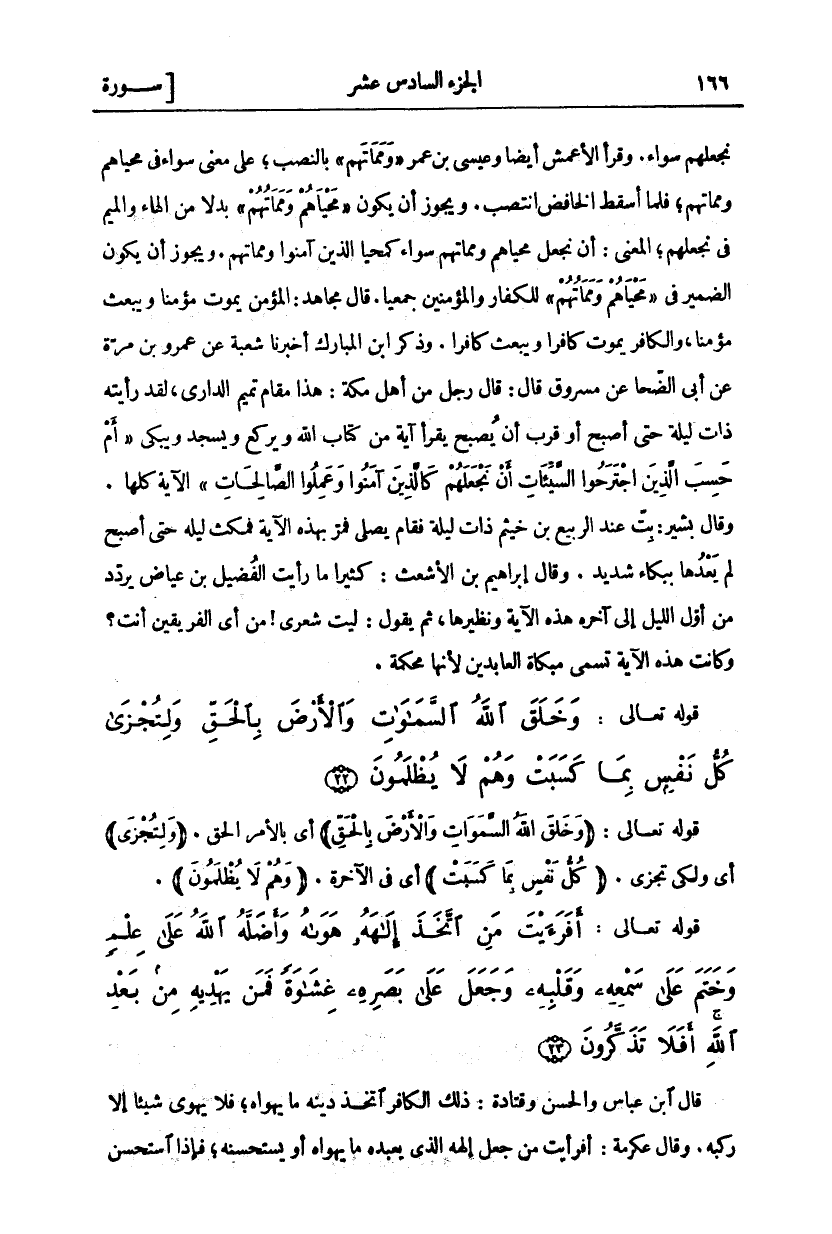 ١٦٦ الجزء السادس عشر [ سـورة
نجعلهم سواء. وقرأ الأعمش أيضا وعيسى بن عمر «وَمَمَاتَهم» بالنصب؛ على معنى سواء فى محياهم
ومماتهم؛ فلما أسقط الخافض انتصب. ويجوز أن يكون «مَحْيَاهُمْ وَمَمَاتُهُمْ» بدلا من الهاء والميم
فى نجعلهم؛ المعنى : أن نجعل محياهم ومماتهم سواء كمحيا الذين آمنوا ومماتهم. ويجوز أن يكون
الضمير فى «مَحْيَاهُمْ وَمَمَاتُهُمْ» للكفار والمؤمنين جمعيا. قال مجاهد: المؤمن يموت مؤمنا ويبعث
مؤمنا، والكافر يموت كافرا ويبعث كافرا . وذكر ابن المبارك أخبرنا شعبة عن عمرو بن مرّة
عن أبى الضّحا عن مسروق قال: قال رجل من أهل مكة : هذا مقام تميم الدارى، لقد رأيته
ذات ليلة حتى أصبح أو قرب أن يُصبح يقرأ آية من كتاب الله ويركع ويسجد ويبكى « أَمْ
حَسِبَ الَّذِينَ اجْتَرَحُوا السَّيِّئَاتِ أَنْ نَجْعَلَهُمْ كَالَّذِينَ آمَنُوا وَعَمِلُوا الصَّالِحَاتِ » الآية كلها .
وقال بشير: بِتّ عند الربيع بن خيثم ذات ليلة فقام يصلى فمرّ بهذه الآية فمكث ليله حتى أصبح
لم يَعْدُها ببكاء شديد . وقال إبراهيم بن الأشعث : كثيرا ما رأيت الفُضيل بن عياض يردّد
من أوّل الليل إلى آخره هذه الآية ونظيرها، ثم يقول : ليت شعرى! من أى الفريقين أنت؟
وكانت هذه الآية تسمى مبكاة العابدين لأنها محكمة .
قوله تعـالى : وَخَلَقَ ٱللَّهُ ٱلسَّمَـٰوَٰتِ وَٱلْأَرْضَ بِٱلْحَقِّ وَلِتُجْزَىٰ
كُلُّ نَفْسٍۭ بِمَا كَسَبَتْ وَهُمْ لَا يُظْلَمُونَ ٢٢
قوله تعـالى : ﴿وَخَلَقَ اللَّهُ السَّمَوَاتِ وَالْأَرْضَ بِالْحَقِّ﴾ أى بالأمر الحق . ﴿وَلِتُجْزَى﴾
أى ولكى تجزى . ﴿ كُلُّ نَفْسٍ بِمَا كَسَبَتْ ﴾ أى فى الآخرة . ﴿ وَهُمْ لَا يُظْلَمُونَ ﴾ .
قوله تعـالى : أَفَرَءَيْتَ مَنِ ٱتَّخَذَ إِلَـٰهَهُۥ هَوَىٰهُ وَأَضَلَّهُ ٱللَّهُ عَلَىٰ عِلْمٍ
وَخَتَمَ عَلَىٰ سَمْعِهِۦ وَقَلْبِهِۦ وَجَعَلَ عَلَىٰ بَصَرِهِۦ غِشَـٰوَةً فَمَن يَهْدِيهِ مِنۢ بَعْدِ
ٱللَّهِۚ أَفَلَا تَذَكَّرُونَ ٢٣
قال ٱبن عباس والحسن وقتادة : ذلك الكافر ٱتخـذ دينه ما يهواه؛ فلا يهوى شيئا إلا
ركبه. وقال عكرمة : أفرأيت من جعل إلهه الذى يعبده ما يهواه أو يستحسنه؛ فإذا ٱستحسن